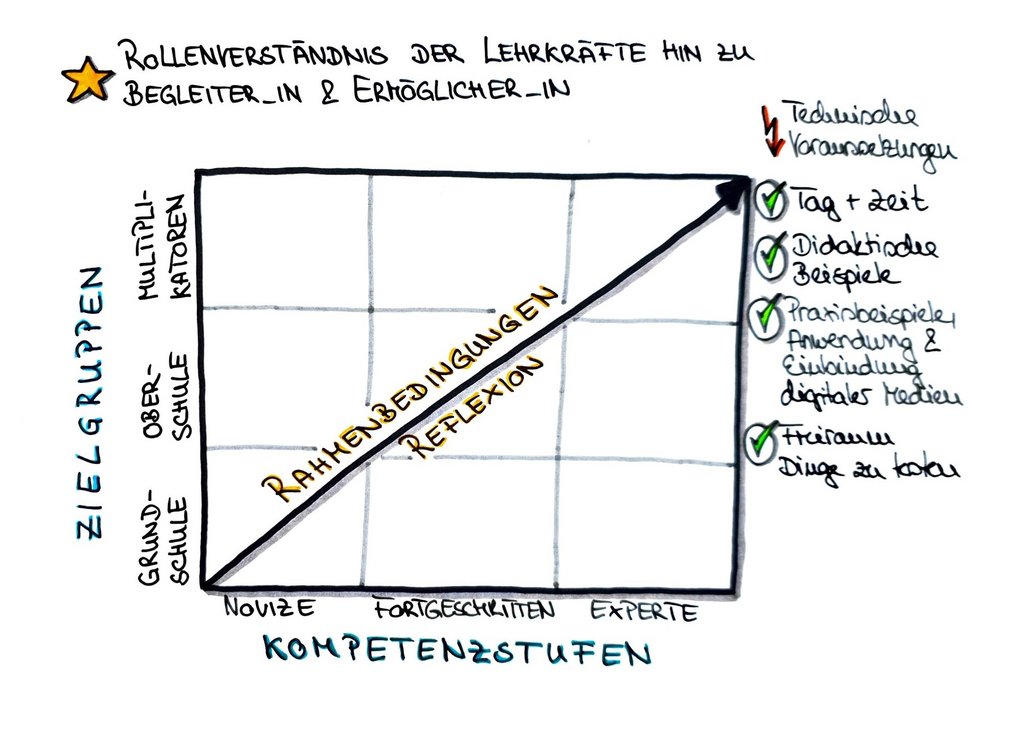 ROLLENVERSTÄNDNIS DER LEHRKRÄFTE HIN ZU
BEGLEITER_IN & ERMÖGLICHER_IN
Technische
Voraussetzungen
Tag + Zeit
Didaktische
Beispiele
Praxisbeispiele,
Anwendung &
Einbindung
digitaler Medien
Freiraum
Dinge zu
ZIELGRUPPEN
MULTIPLI-
KATOREN
OBER-
SCHULE
GRUND-
SCHULE
RAHMENBEDINGUNGEN
REFLEXION
NOVIZE
FORTGESCHRITTEN
EXPERTE
KOMPETENZSTUFEN